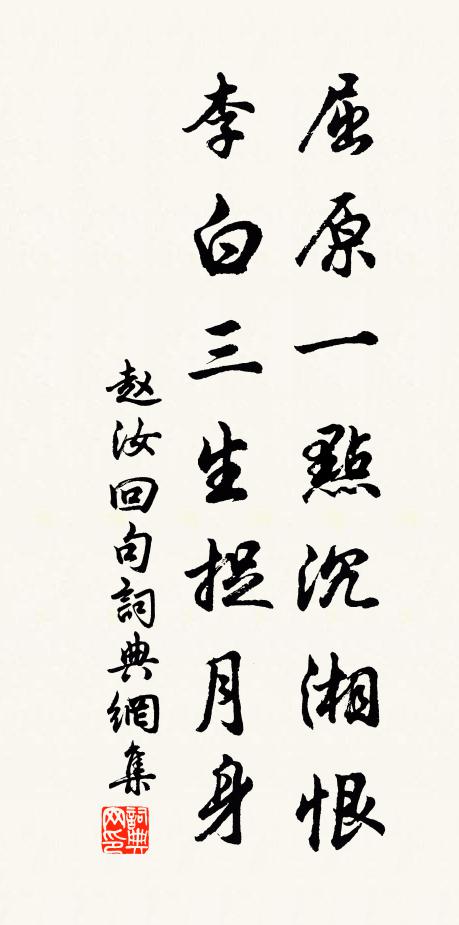 屈原一點沉湘恨
李白三生捉月身
赵汝回句詞典網集
詞典
网印